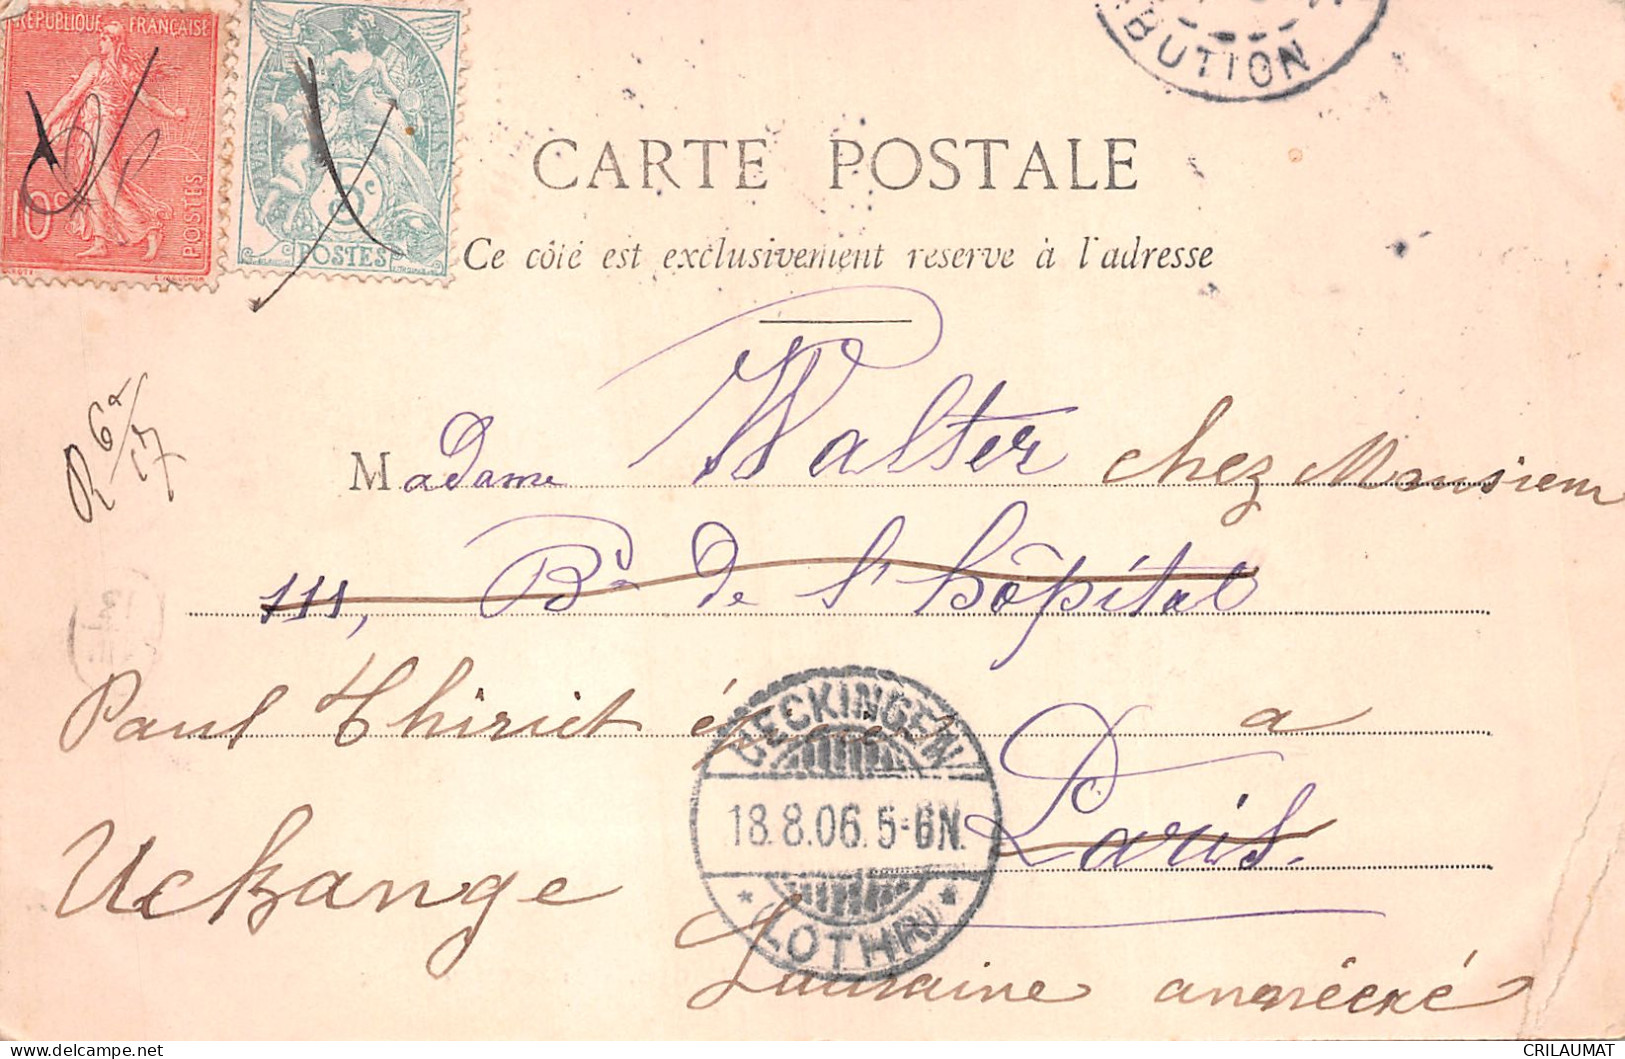 REPUBLIQUE FRANÇAISE
10c
POSTES
5c
POSTES
BUTION
CARTE POSTALE
Ce côté est exclusivement reserve à l'adresse
R 6x/17
Madame Walter chez Monsieur
111, Bd de l'hôpital
Paul Thiriet épicier a
Paris.
Uckange
Lorraine annécxé
BECKINGEN
18.8.06.5-6N.
* (LOTHR.) *
CRILAUMAT